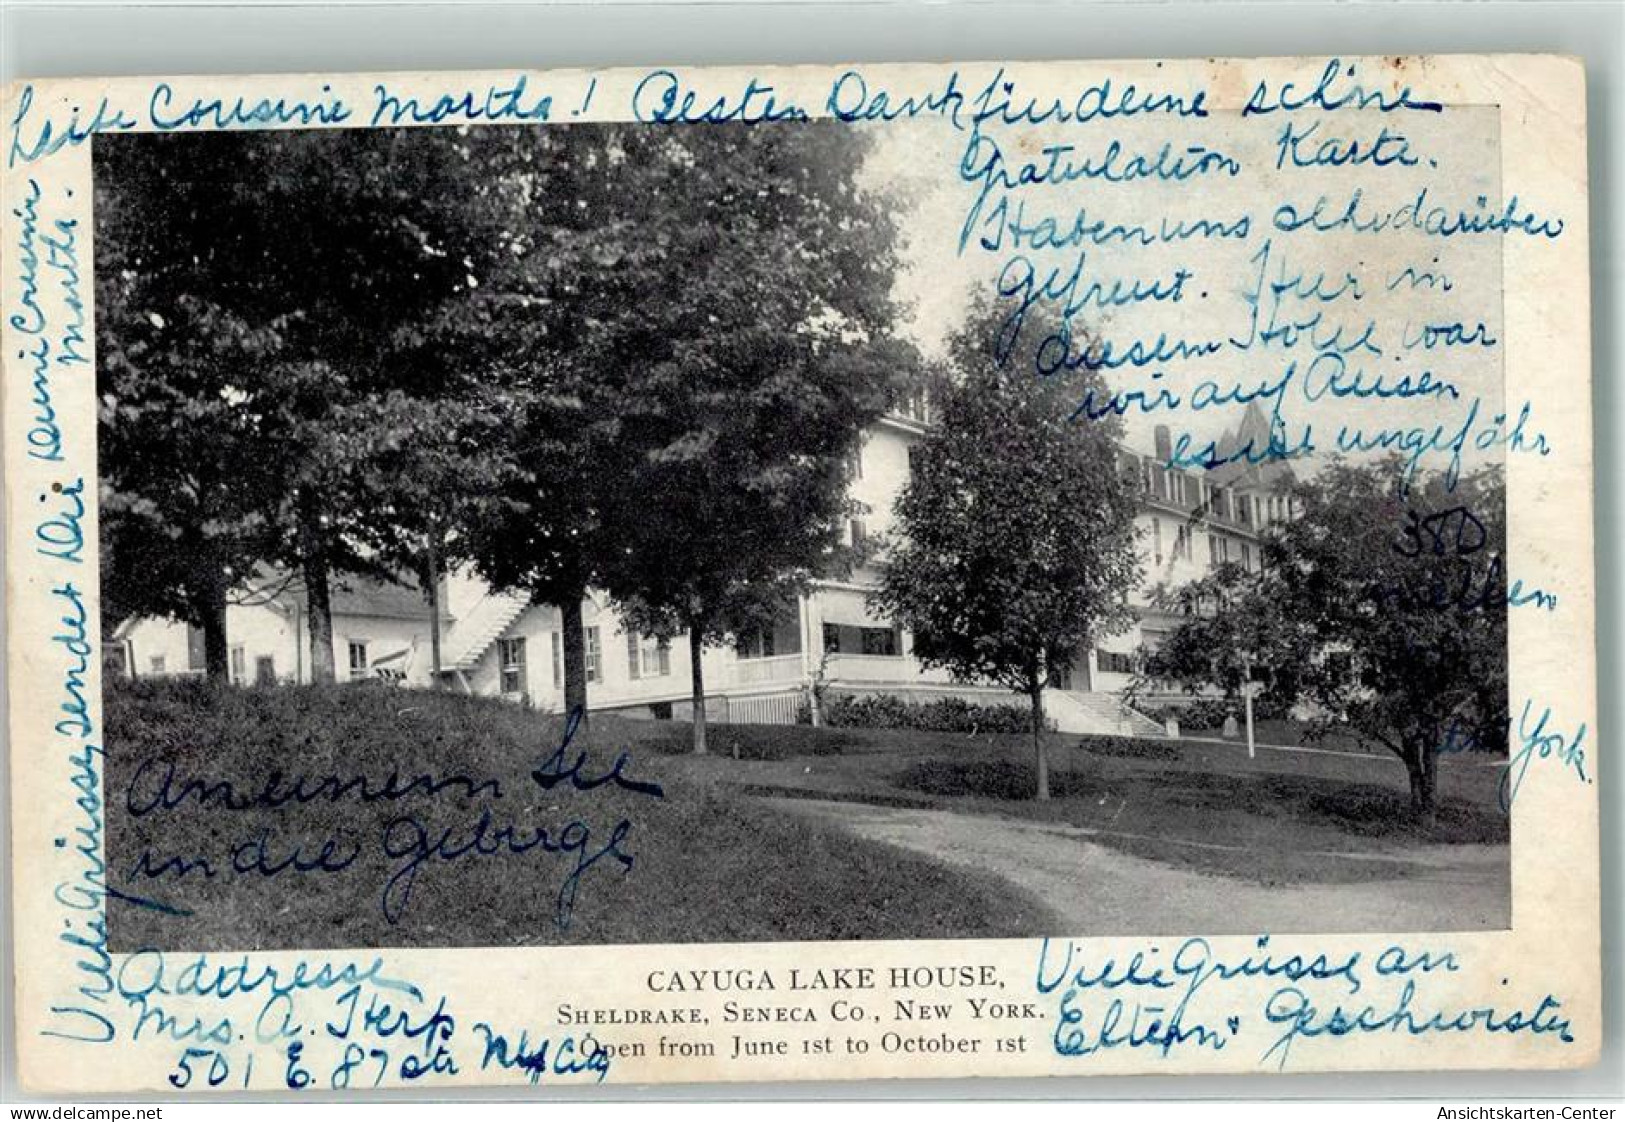 Leibe Cousine Martha! Besten Dank für deine schöne
Gratulation Karte.
Haben uns sehr darüber
gefreut. Hier in
diesem Hotel war
wir auf Reisen
es ist ungefähr
380
meilen
York.
An einem See
in die Gebirge
Viele Grüsse sendet Dir Deine Cousine
Martha.
Addresse
Mrs. A. Herp
501 E. 87 str City
CAYUGA LAKE HOUSE,
SHELDRAKE, SENECA CO., NEW YORK.
Open from June 1st to October 1st
Viele Grüsse an
Eltern Geschwister
Ansichtskarten-Center